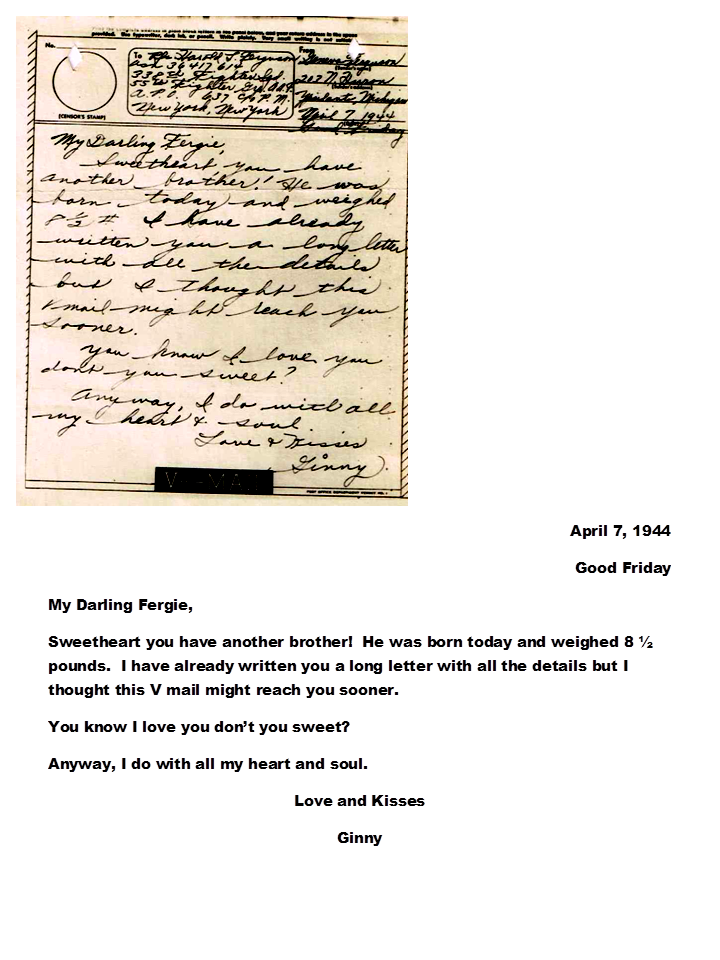 provided. Use typewriter, dark ink, or pencil. Write plainly. Very small writing is not suitable.
No.
[CENSOR'S STAMP]
To Pfc. Harold L. Ferguson
ASN 36417614
338th Fighter Sqd.
55th Fighter Grp. A.A.F.
A.P.O. 637 c/o P.M.
New York, New York
From
Geneva Ferguson
217 N. Huron
Ypsilanti, Michigan
April 7, 1944
Good Friday
My Darling Fergie,
Sweetheart you have
another brother! He was
born today and weighed
8 ½ # I have already
written you a long letter
with all the details
but I thought this
V mail might reach you
sooner.
You know I love you
dont you sweet?
Anyway, I do with all
my heart & soul.
Love & Kisses
Ginny
V-MAIL
April 7, 1944
Good Friday
My Darling Fergie,
Sweetheart you have another brother!  He was born today and weighed 8 ½
pounds.  I have already written you a long letter with all the details but I
thought this V mail might reach you sooner.
You know I love you don’t you sweet?
Anyway, I do with all my heart and soul.
Love and Kisses
Ginny